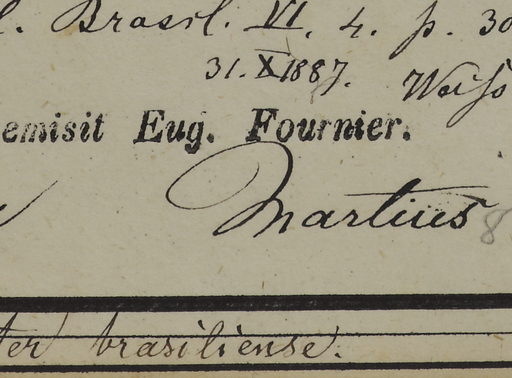 l. Brasil. VI. 4. p. 30
31. X 1887.
emisit Eug. Fournier.
Martius 8
ter brasiliense.